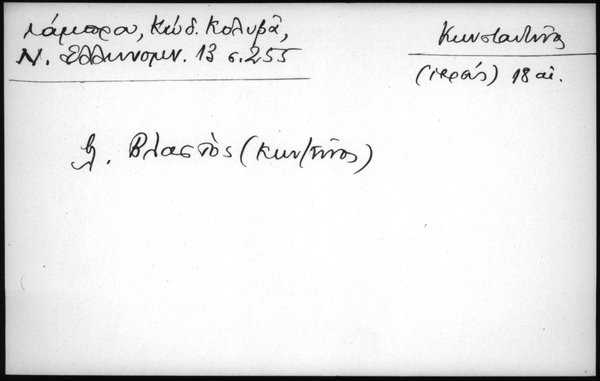 Λάμπρου, Κώδ. Κολυβᾶ,
Ν. Ἑλληνομν. 13 σ. 255
Κωνσταντῖνος
(ἱερεύς) 18 αἰ.
βλ. Βλαστὸς (Κων/τῖνος)